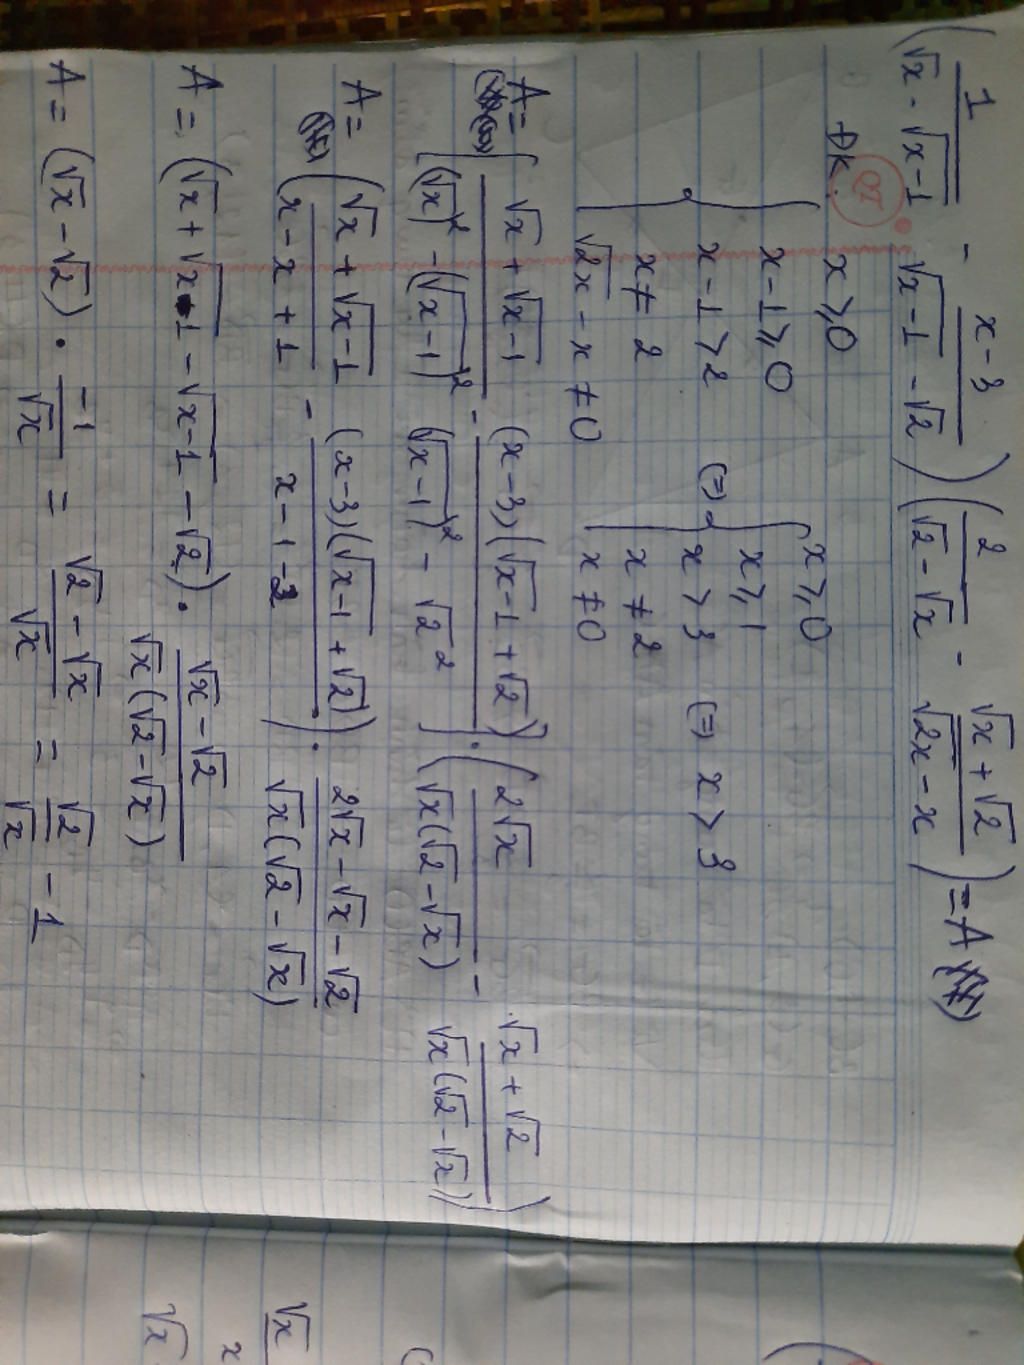 (1/(√x - √(x-1)) - (x-3)/(√(x-1) - √2)) (2/(√2 - √x) - (√x + √2)/(√(2x) - x)) = A
ĐK.
{ x ⩾ 0 ; x-1 ⩾ 0 ; x-1 > 2 ; x ≠ 2 ; √(2x) - x ≠ 0 (=) { x ⩾ 0 ; x ⩾ 1 ; x > 3 ; x ≠ 2 ; x ≠ 0 (=) x > 3
A = [(√x + √(x-1))/((√x)² - (√(x-1))²) - (x-3)(√(x-1) + √2)/((√(x-1))² - √2²)] . (2√x/(√x(√2 - √x)) - (√x + √2)/(√x(√2 - √x)))
A = ((√x + √(x-1))/(x - x + 1) - (x-3)(√(x-1) + √2)/(x-1-2)) . (2√x - √x - √2)/(√x(√2 - √x))
A = (√x + √(x-1) - √(x-1) - √2) . (√x - √2)/(√x(√2 - √x))
A = (√x - √2) . (-1)/√x = (√2 - √x)/√x = √2/√x - 1